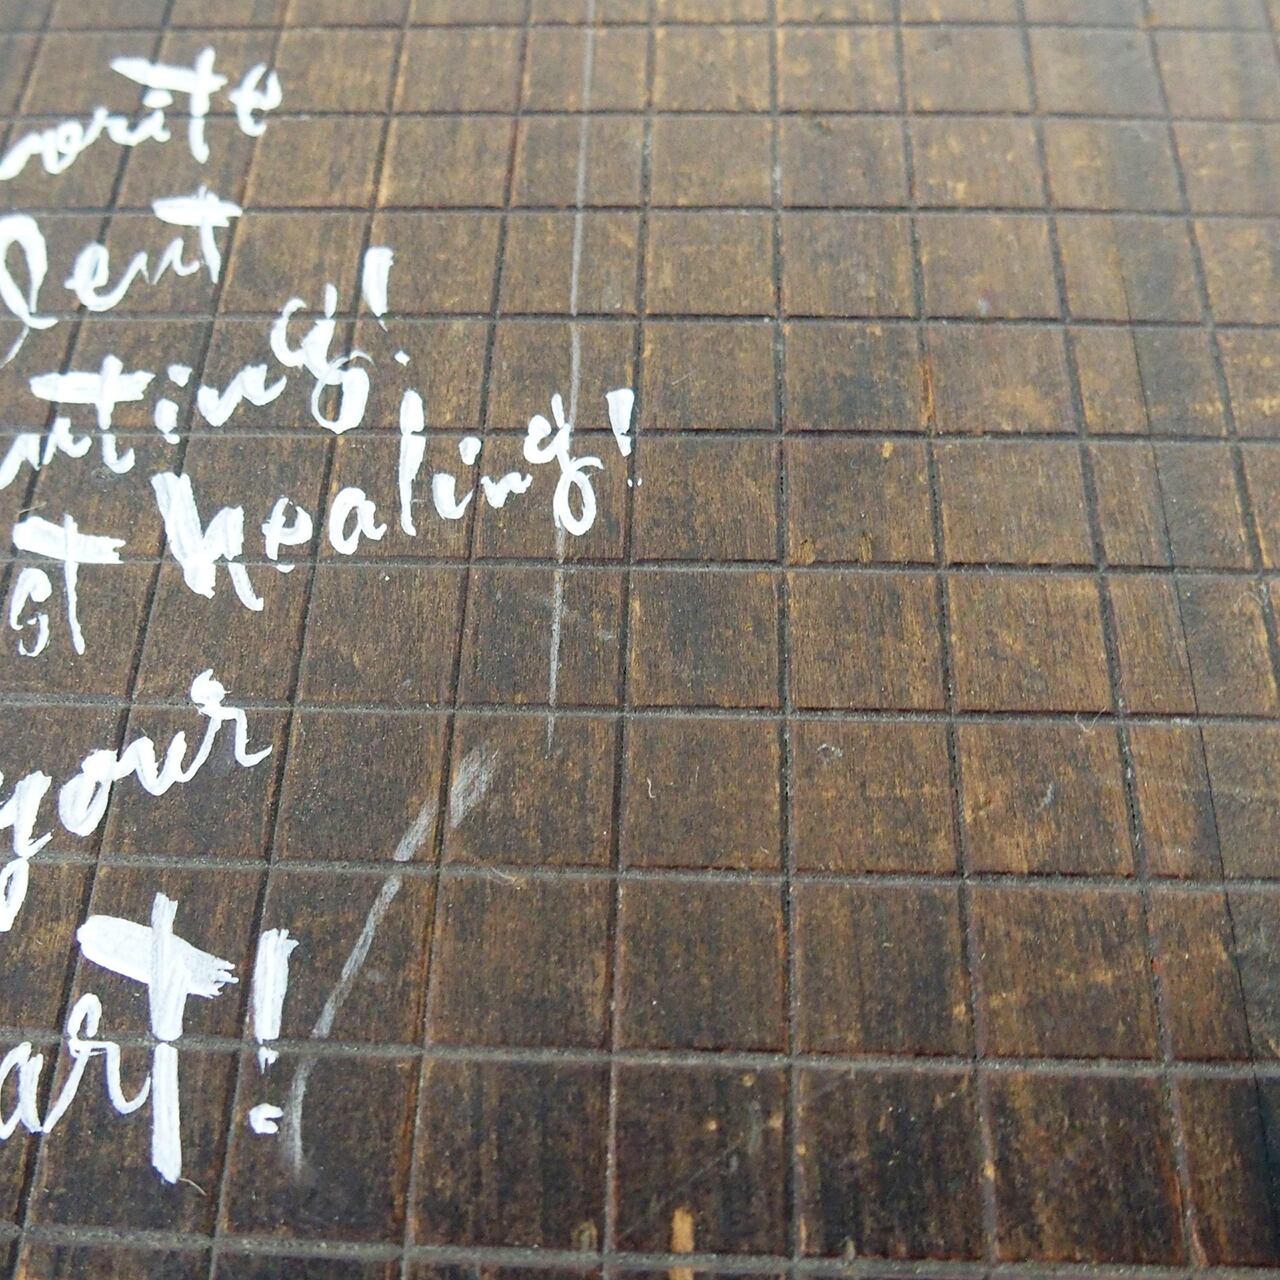 orite
lent
nting!
st healing!
your
art!